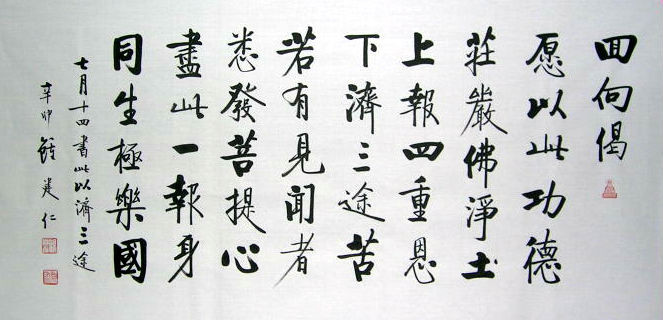 回向偈
愿以此功德
莊嚴佛淨土
上報四重恩
下濟三途苦
若有見聞者
悉發菩提心
盡此一報身
同生極樂國
七月十四書此以濟三途
辛卯鍾建仁